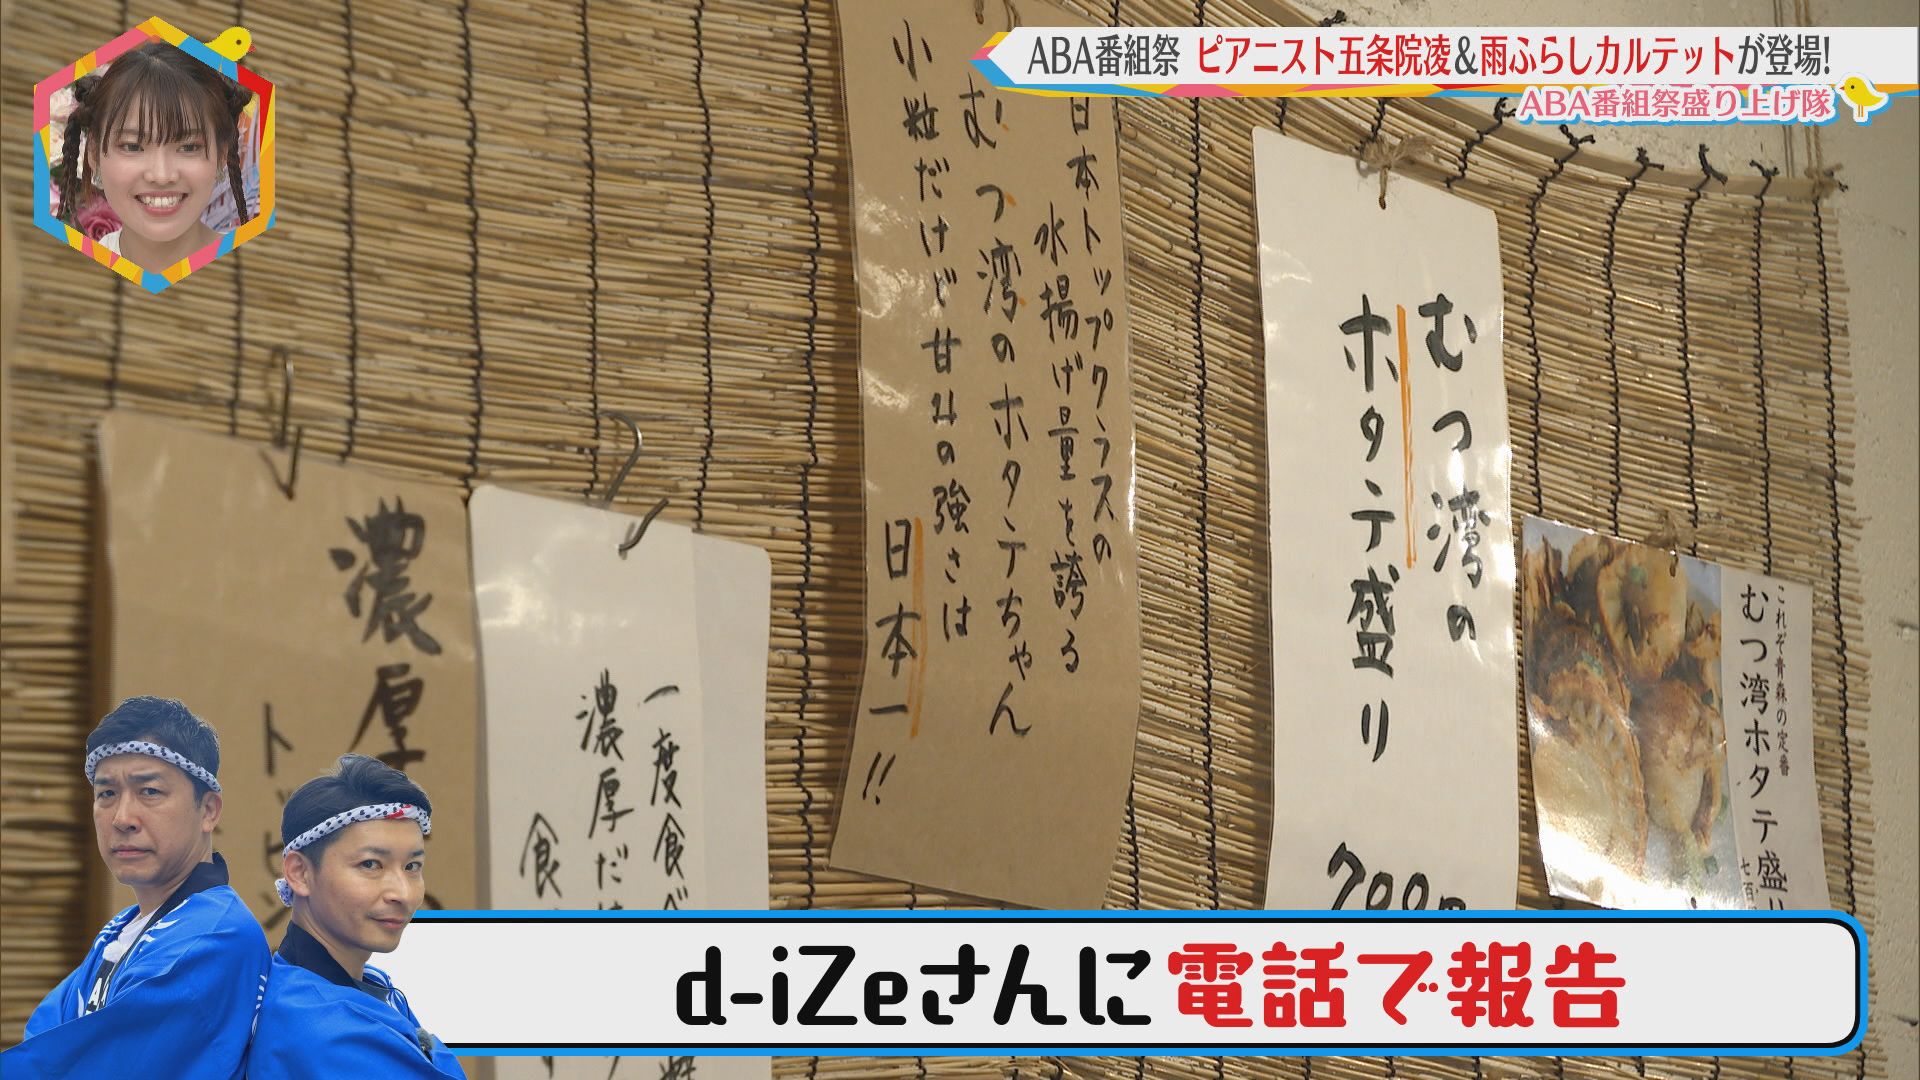 ABA番組祭 ピアニスト五条院凌&雨ふらしカルテットが登場!
ABA番組祭盛り上げ隊
これぞ青森の定番
むつ湾ホタテ盛り
むつ湾の
ホタテ盛り
700円
日本トップクラスの
水揚げ量を誇る
むつ湾のホタテちゃん
小粒だけど甘みの強さは
日本一!!
一度食べ
濃厚だけ
食
濃厚
トッピン
d-iZeさんに電話で報告